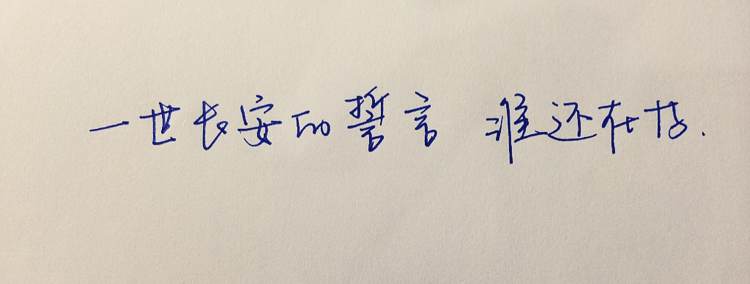 一世长安的誓言 谁还在守.